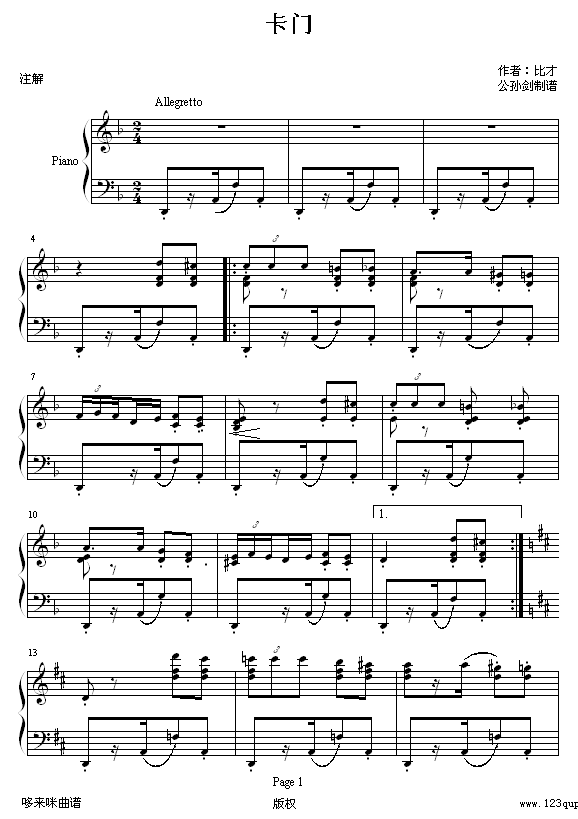 卡门
注解
作者：比才
公孙剑制谱
Allegretto
Piano
4
3
7
3
3
10
3
1.
13
3
Page 1
哆来咪曲谱
版权
www.123qup